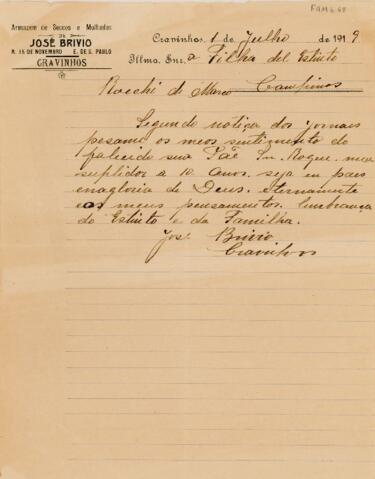 FAM 6.68
Armazem de Seccos e Molhados
DE
JOSÉ BRIVIO
R. 15 DE NOVEMBRO E. DE S. PAULO
CRAVINHOS
Cravinhos, 1 de Julho de 1919
Illmo. Snr. a Filha del Estinto
Rocchi de Marco Campinos
Segundo notiça dos jornais
pesame os meos sentimento do
falecido sua Pãe Sn Roque
a 10 Anos. seja en paes
enagloria de Deus. eternamente
eos meus pensamentos. lembrança
do Estinto e da Familha.
José Brivio
Cravinhos